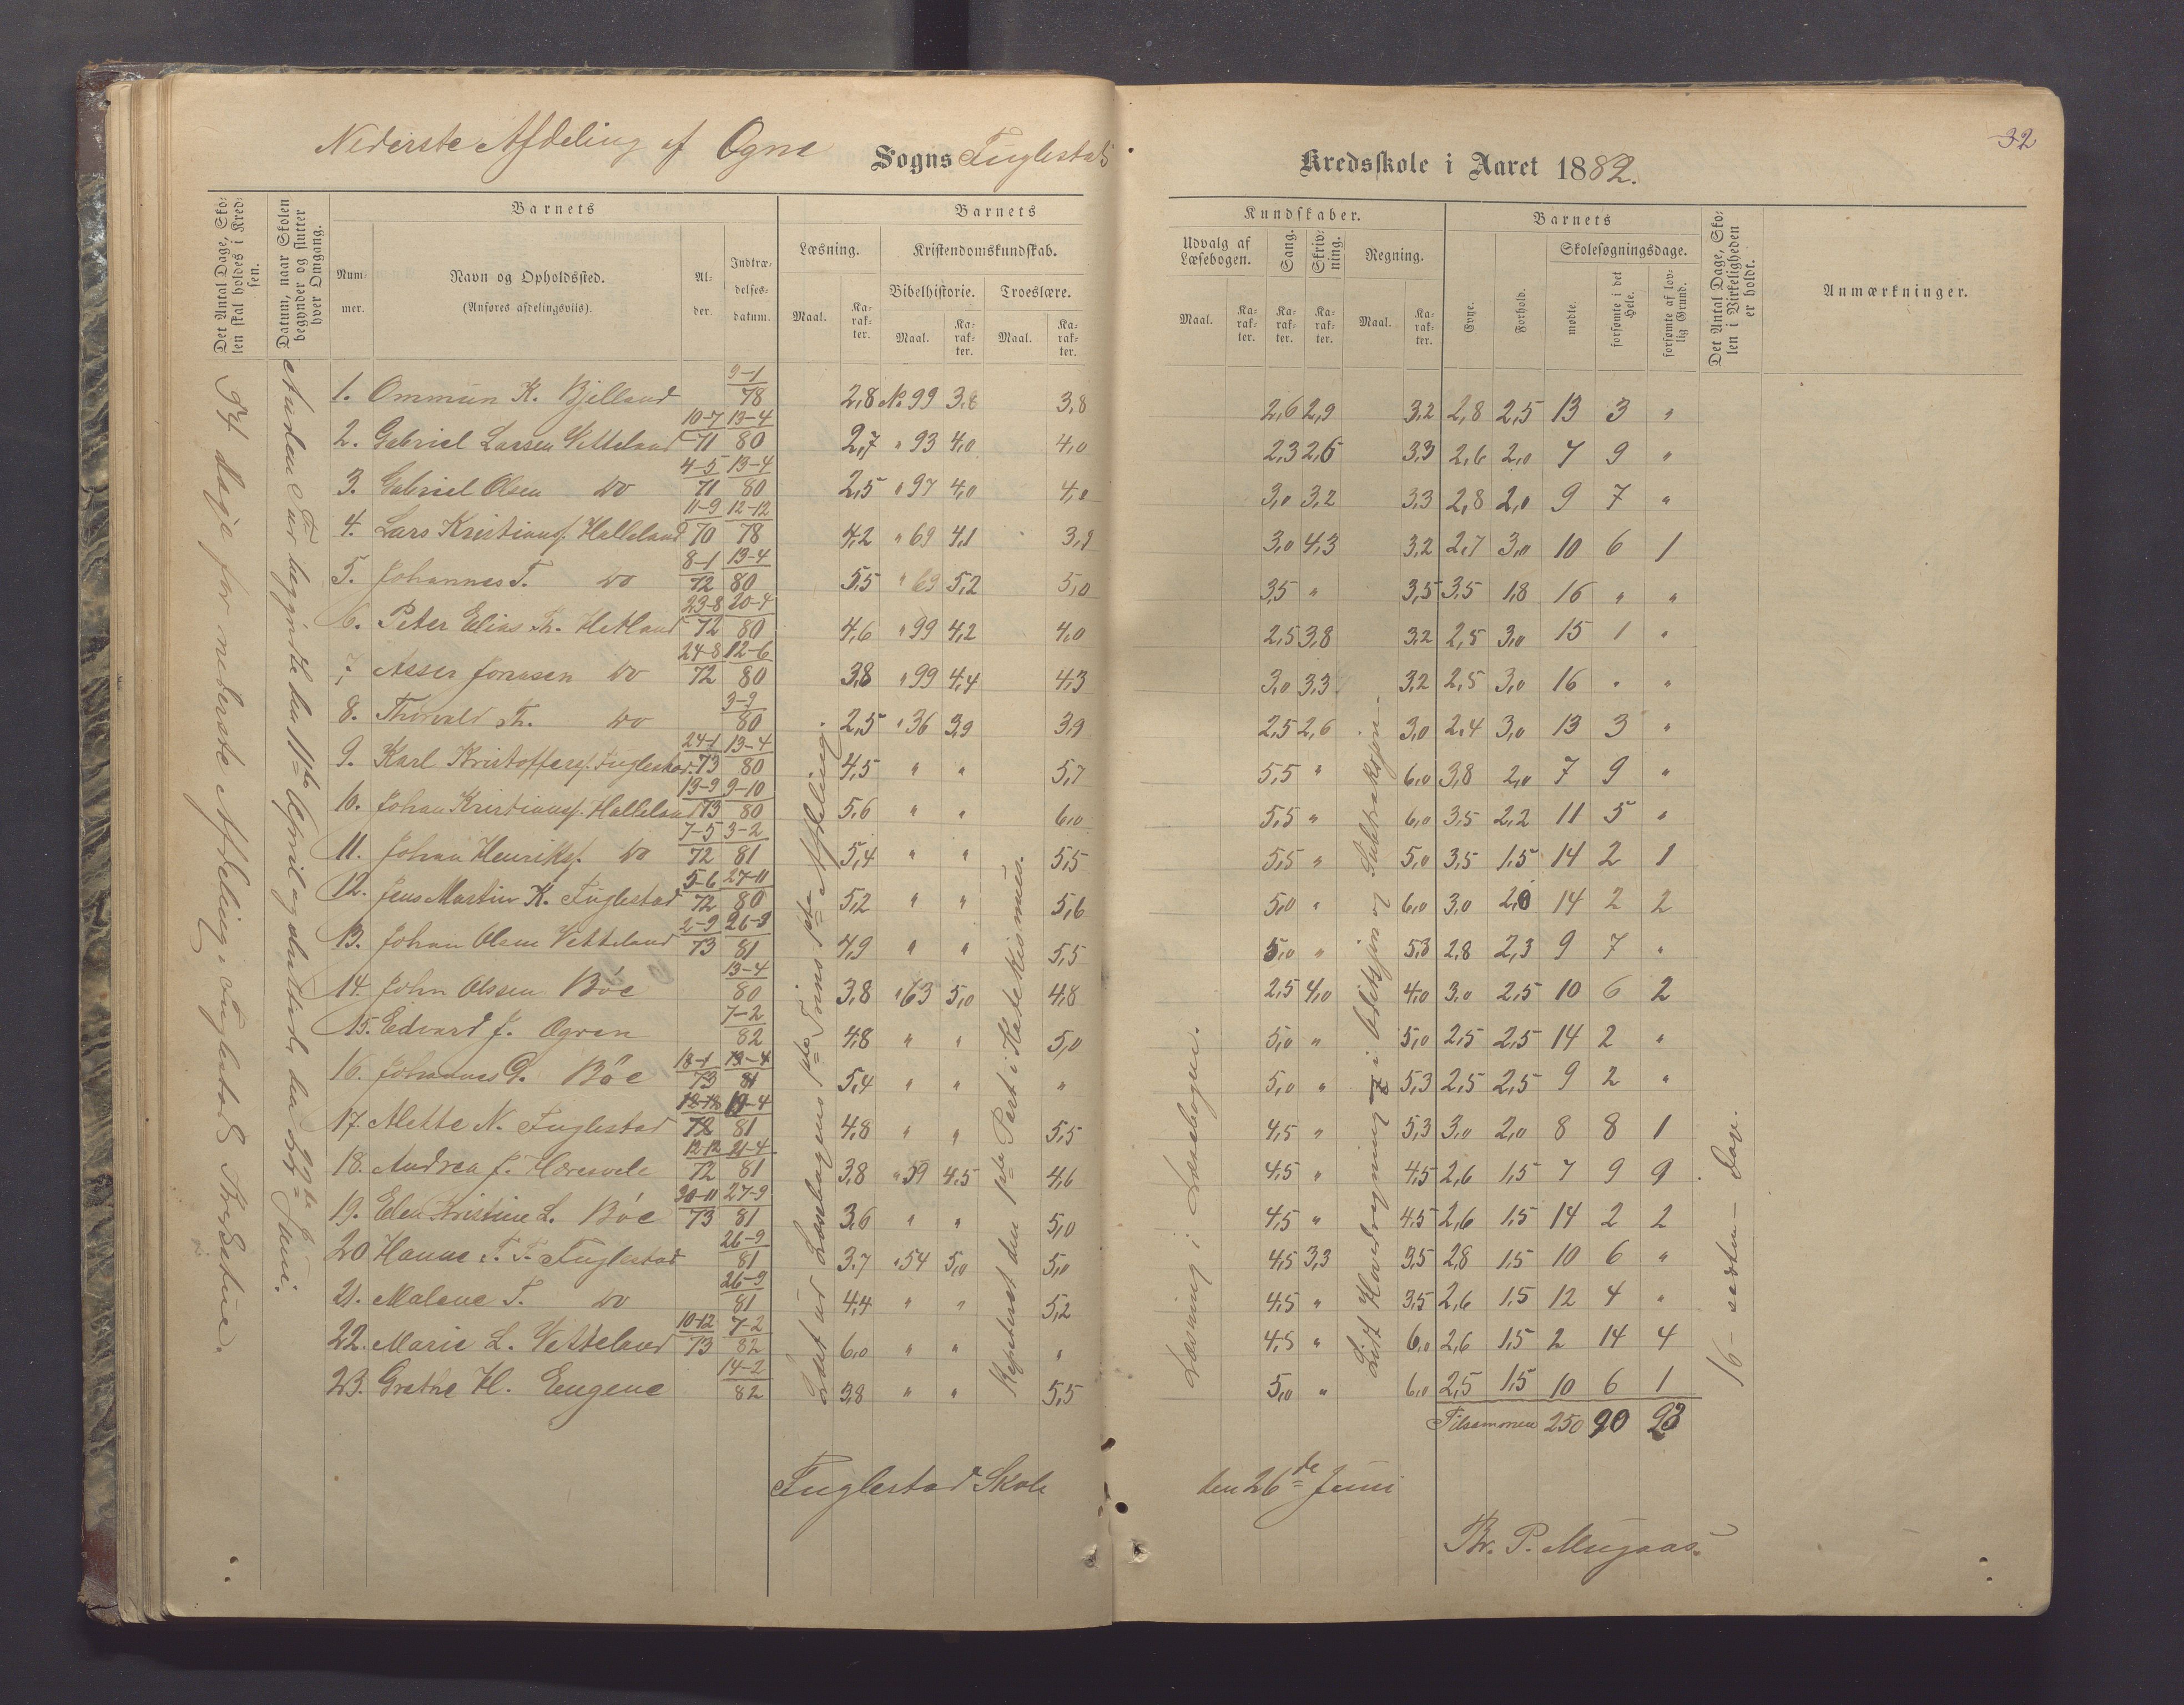 32
Nederste Afdeling af Ogne Sogns Fuglestad Kredsskole i Aaret 1882.
Det Antal Dage, Skolen skal holdes i Kredsen.
Datum, naar Skolen begynder og slutter hver Omgang.
Barnets
Nummer.
Navn og Opholdssted.
(Anføres afdelingsviis).
Alder.
Indtrædelsesdatum.
Barnets Kundskaber.
Læsning.
Maal.
Karakter.
Kristendomskundskab.
Bibelhistorie.
Maal.
Karakter.
Troeslære.
Maal.
Karakter.
Udvalg af Læsebogen.
Maal.
Karakter.
Sang.
Karakter.
Skrivning.
Karakter.
Regning.
Maal.
Karakter.
Barnets
Evne.
Forhold.
Skolesøgningsdage.
mødte.
forsømte i det Hele.
forsømte af lovlig Grund.
Det Antal Dage, Skolen i Virkeligheden er holdt.
Anmærkninger.
dage for nederste Afdeling i Fuglestads
Anden Tur begyndte den 11te April og sluttede den 22de Juni.
1. Ommun K. Bjelland 9-1/78 2,8 No 99 3,8 3,8 2,6 2,9 3,2 2,8 2,5 13 3 "
2. Gabriel Larsen Vetteland 10-7/71 13-4/80 2,7 " 93 4,0 4,0 2,3 2,6 3,3 2,6 2,0 7 9 "
3. Gabriel Olsen do 4-5/71 13-4/80 2,5 " 97 4,0 4,0 3,0 3,2 3,3 2,8 2,0 9 7 "
4. Lars Kristians. Helleland 11-9/70 12-12/78 4,2 " 69 4,1 3,9 3,0 4,3 3,2 2,7 3,0 10 6 1
5. Johannes T. do 8-1/72 13-4/80 5,5 " 69 5,2 5,0 3,5 " 3,5 3,5 1,8 16 " "
6. Peter Elias Th. Hetland 23-8/72 20-4/80 4,6 " 99 4,2 4,0 2,5 3,8 3,2 2,5 3,0 15 1 "
7. Asser Jonasen do 24-8/72 12-6/80 3,8 " 99 4,4 4,3 3,0 3,3 3,2 2,5 3,0 16 " "
8. Thorvald Th. do 3-9/80 2,5 " 36 3,9 3,9 2,5 2,6 3,0 2,4 3,0 13 3 "
9. Karl Kristoffers. Fuglestad 24-1/73 13-4/80 4,5 " " 5,7 5,5 " 6,0 3,8 2,0 7 9 "
10. Johan Kristians. Helleland 13-9/73 9-10/80 5,6 " " 6,0 5,5 " 6,0 3,5 2,2 11 5 "
11. Johan Henriks. do 7-5/72 3-2/81 5,4 " " 5,5 5,5 " 5,0 3,5 1,5 14 2 1
12. Jens Martin K. Fuglestad 5-6/72 27-11/80 5,2 " " 5,6 5,0 " 6,0 3,0 2,0 14 2 2
13. Johan Olsen Vetteland 2-9/73 26-9/81 4,9 " " 5,5 5,0 " 5,3 2,8 2,3 9 7 "
14. John Olssen Böe 13-4/80 3,8 " 63 5,0 4,8 2,5 4,0 4,0 3,0 2,5 10 6 2
15. Edvard J. Ognen 7-2/82 4,8 " " 5,0 5,0 " 5,0 2,5 2,5 14 2 "
16. Johannes G. Böe 18-1/73 13-4/81 5,4 " " " 5,0 " 5,3 2,5 2,5 9 2 "
17. Alette N. Fuglestad 12-12/72 19-4/81 4,8 " " 5,5 4,5 " 5,3 3,0 2,0 8 8 1
18. Andrea J. 12-12/72 21-4/81 3,8 " 59 4,5 4,6 4,5 " 4,5 2,6 1,5 7 9 9
19. Elen Kristine L. Böe 30-11/73 27-9/81 3,6 " " 5,0 4,5 " 4,5 2,6 1,5 14 2 2
20 Hanne T. T. Fuglestad 26-9/81 3,7 " 54 5,0 5,0 4,5 3,3 3,5 2,8 1,5 10 6 "
21. Malene T. do 26-9/81 4,4 " " 5,2 4,5 " 3,5 2,6 1,5 12 4 "
22. Marie L. Vetteland 10-12/73 7-2/82 6,0 " " " 4,5 " 6,0 2,6 1,5 2 14 4
23. Grethe H. Eugene 14-2/82 3,8 " " 5,5 5,0 " 6,0 2,5 1,5 10 6 1
Læst ud Læsebogens 1ste Trins 1ste Afdeling.
Repeteret den 1ste Part i Katekismus.
Læsning i Læsebogen.
Lidt Hovedregning i Addisjon og Subtraksjon.
16 - sexten - Dage.
Tilsammen 250 90 23
Fuglestad Skole den 26de Juni
Th. P. Mugaas.